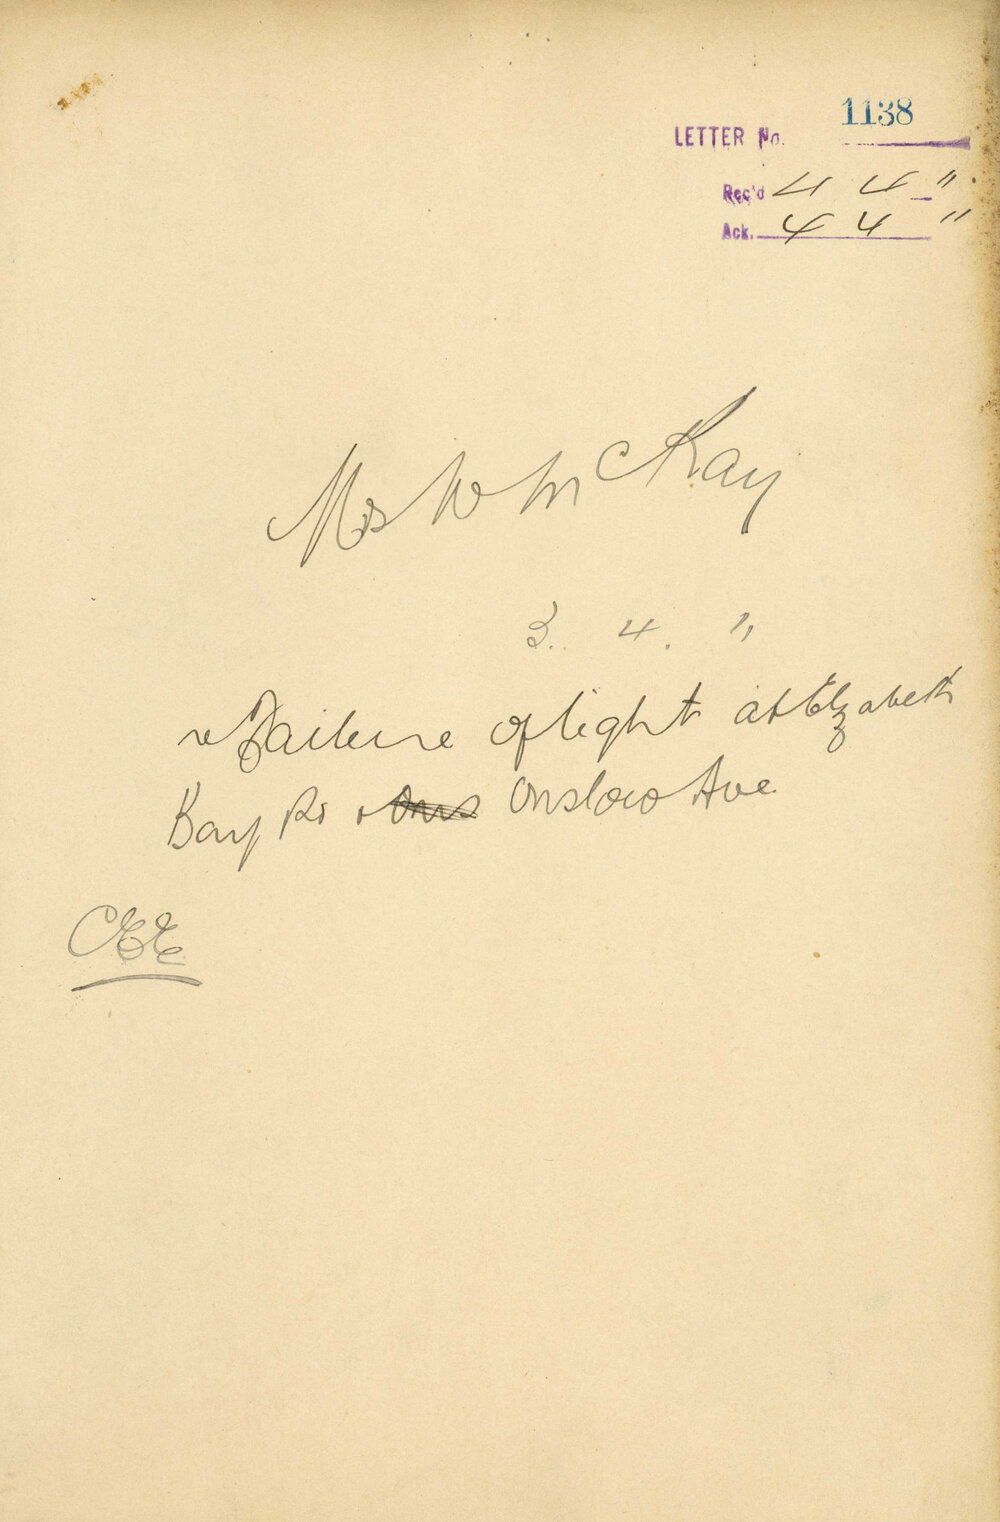 1138
LETTER No.
Rec'd 4 4 "
Ack. 4 4 "
Mrs W McKay
3. 4. "
re Failure of light at Elizabeth
Bay Rd & Onslow Ave
CEE